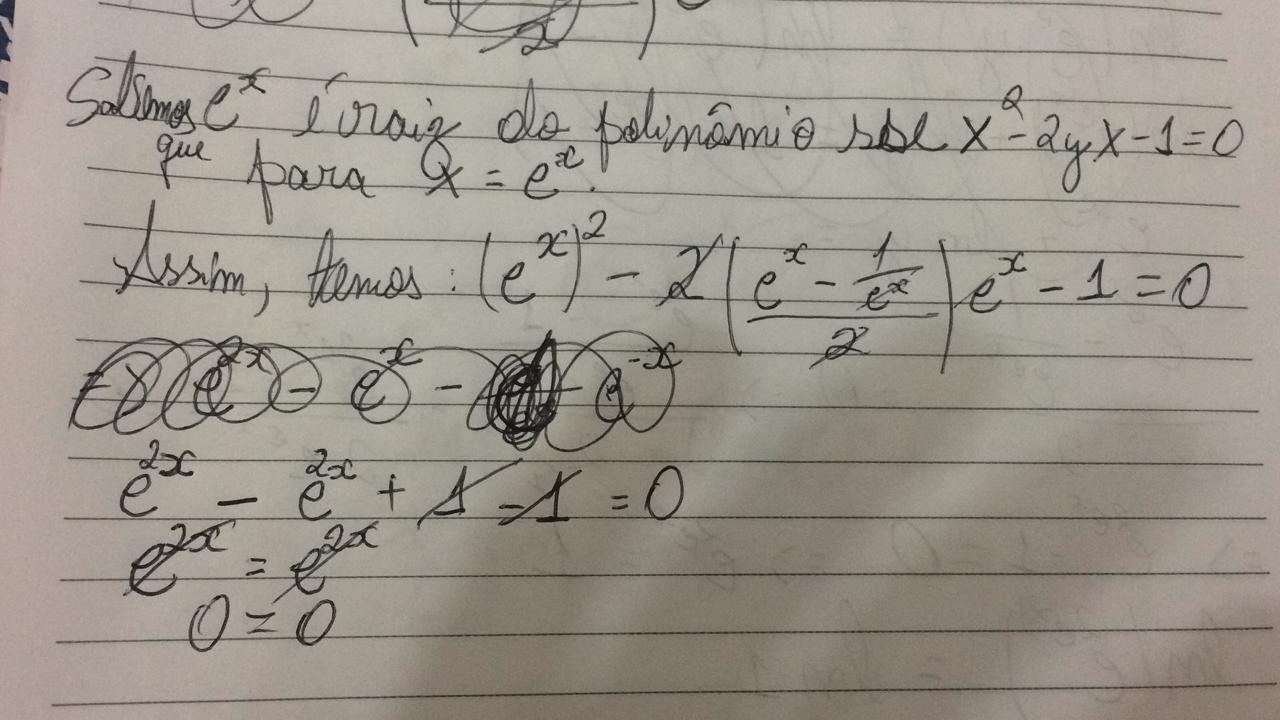 Sabemos que e^x é raiz do polinômio sse X^2 - 2yX - 1 = 0
para X = e^x.
Assim, temos: (e^x)^2 - 2((e^x - 1/e^x)/2) e^x - 1 = 0
e^{2x} - e^{2x} + 1 - 1 = 0
e^{2x} = e^{2x}
0 = 0